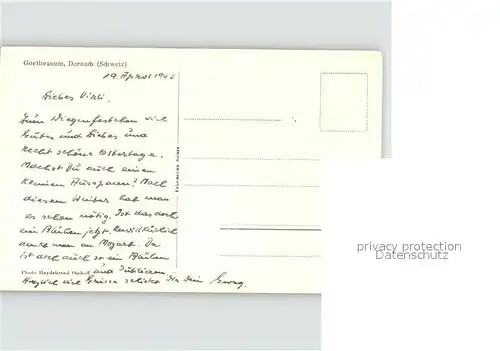 Goetheanum, Dornach (Schweiz)
19. April 1943
Liebes Vikli,
Zum Wiegenfestchen viel
Gutes und Liebes und
recht schöne Ostertage.
Machst Du auch einen
kleinen Ausspann? Nach
diesem Winter hat man
es schon nötig. Ist das doch
ein Blühen jetzt. Unwillkürlich
denkt man an Mozart. Da
ist doch auch so ein Blühen
und Jubilieren.
Herzlich viel Grüsse schickt Dir Dein
Photo Heydebrand Osthoff
privacy protection